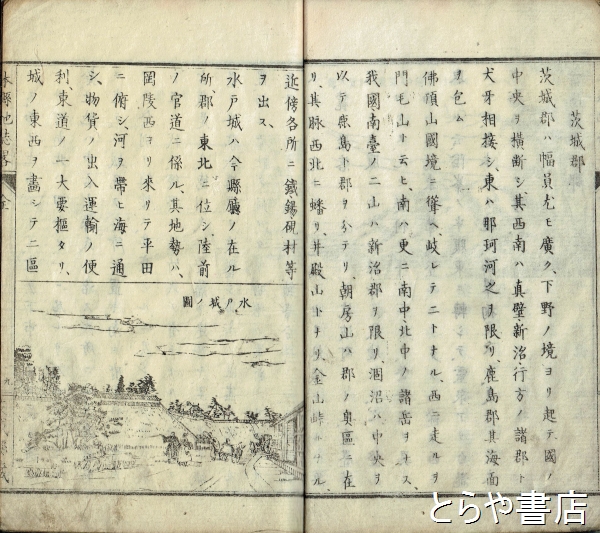 茨城郡
茨城郡ハ幅員尤モ廣ク、下野ノ境ヨリ起テ國ノ
中央ヲ横斷シ其西南ハ真壁、新治、行方ノ諸郡ト
犬牙相接シ、東ハ那珂河之ヲ限リ、鹿島郡其海面
ヲ包ム
佛頂山國境ニ聳ヘ、岐レテ二トナル、西ニ走ルヲ
門毛山ト云ヒ、南ハ更ニ南中北中ノ諸岳ヲ
我國南臺ノ二山ハ新治郡ヲ限リ涸沼ハ中央ヲ
以テ鹿島ト郡ヲ分テリ、朝房山ハ郡ノ奥區ニ在
リ、其脉西北ニ蟠リ、并殿山トナリ、金山峙トナル、
近傍各所ニ鐵錫硯材等
ヲ出ス、
水戸城ハ今縣廳ノ在ル
所、郡ノ東北ニ位シ、陸前
ノ官道ニ係ル、其地勢ハ、
岡陵西ヨリ來リテ平田
ニ俯シ河ヲ帶ヒ海ニ通
シ、物貨ノ出入運輸ノ便
利、東道ノ一大要樞タリ、
城ノ東西ヲ畫シテ二區
水戸城ノ圖
縣地誌畧
全
九
とらや書店